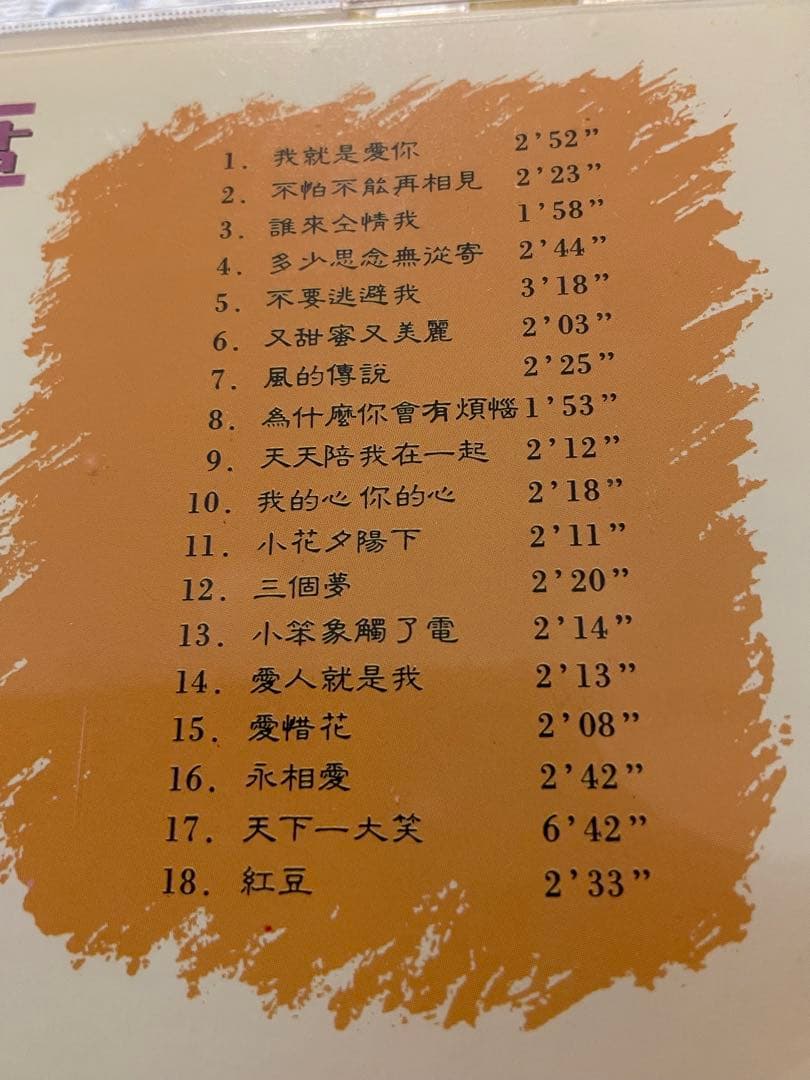 1. 我就是愛你 2’52”
2. 不怕不能再相見 2’23”
3. 誰來仝情我 1’58”
4. 多少思念無從寄 2’44”
5. 不要逃避我 3’18”
6. 又甜蜜又美麗 2’03”
7. 風的傳說 2’25”
8. 為什麼你會有煩惱 1’53”
9. 天天陪我在一起 2’12”
10. 我的心你的心 2’18”
11. 小花夕陽下 2’11”
12. 三個夢 2’20”
13. 小笨象觸了電 2’14”
14. 愛人就是我 2’13”
15. 愛惜花 2’08”
16. 永相愛 2’42”
17. 天下一大笑 6’42”
18. 紅豆 2’33”